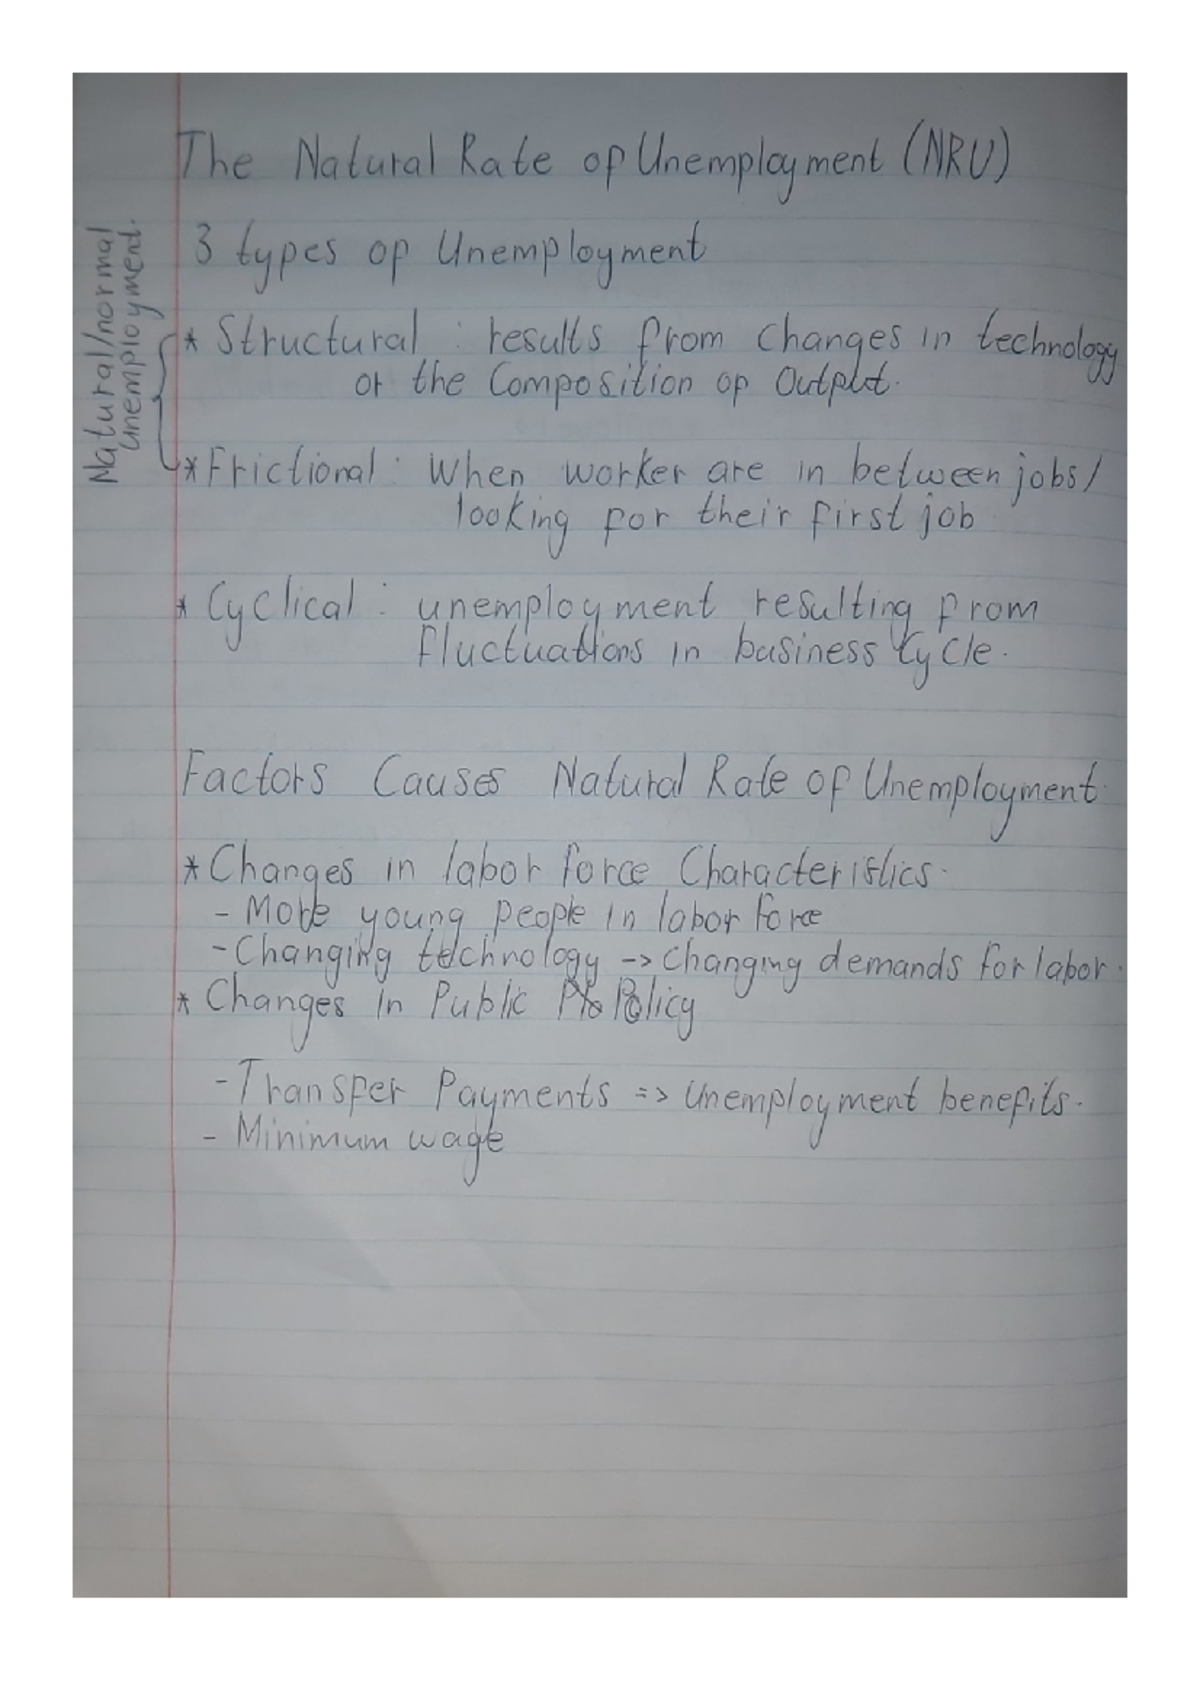 The Natural Rate of Unemployment (NRU)
3 types of Unemployment
Natural/normal
unemployment.
* Structural : results from changes in technology
or the Composition of Output.
* Frictional : When worker are in between jobs/
looking for their first job
* Cyclical : unemployment resulting from
fluctuations in business Cycle.
Factors Causes Natural Rate of Unemployment
* Changes in labor force Characteristics.
- More young people in labor force
- Changing technology -> Changing demands for labor.
* Changes in Public Policy
- Transfer Payments => Unemployment benefits.
- Minimum wage